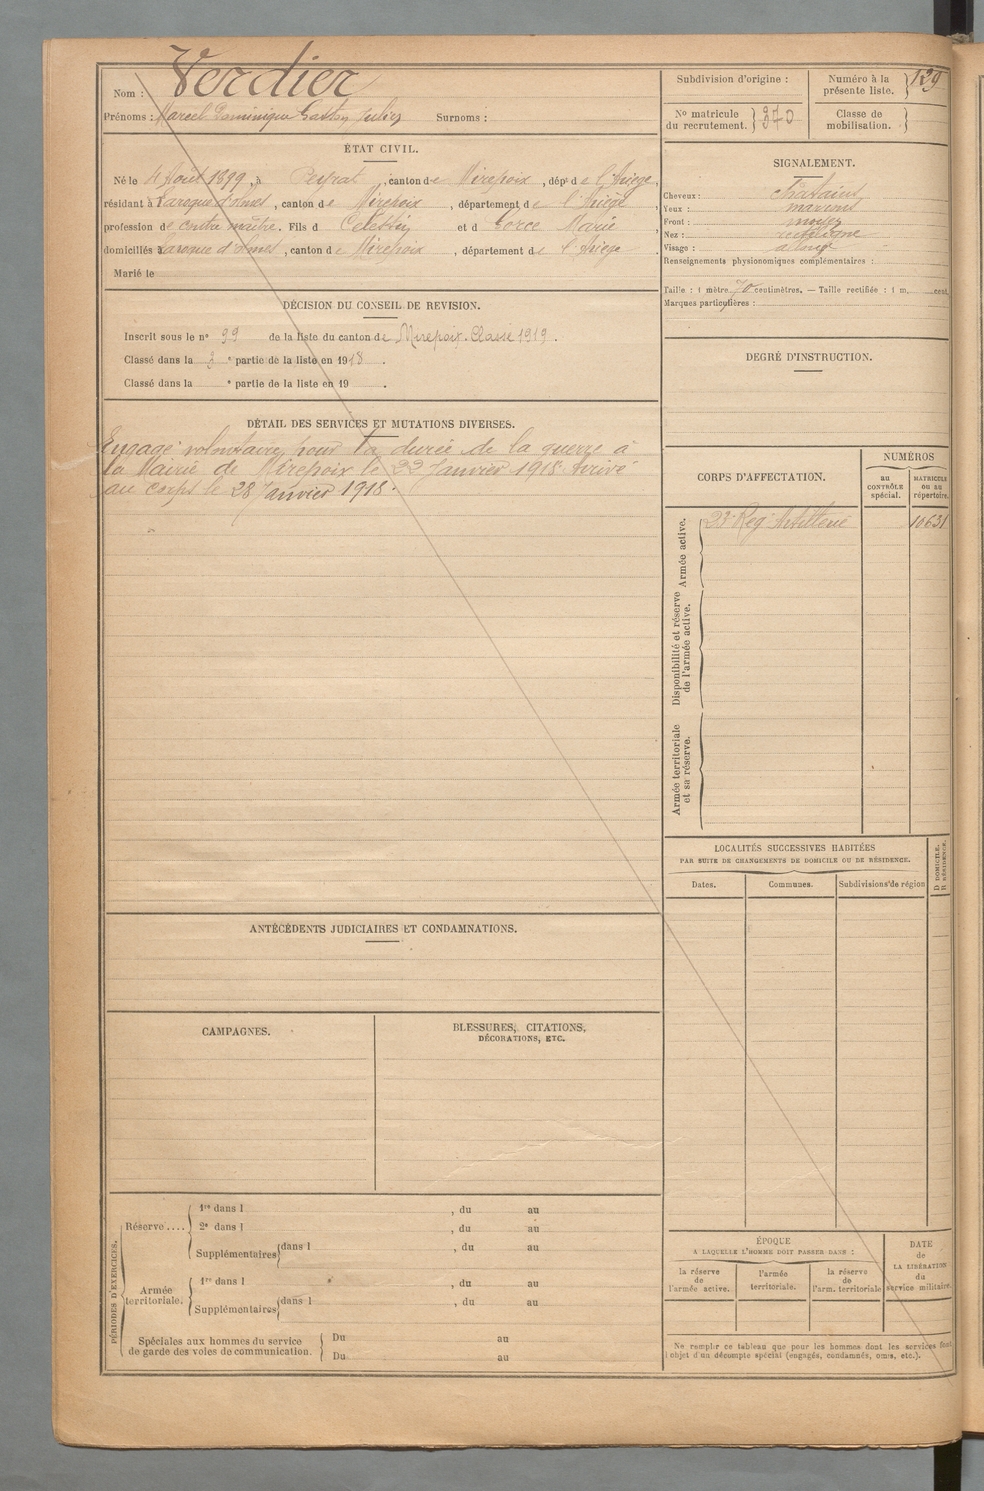 Nom : Verdier
Prénoms : Marcel Dominique Gaston Julien Surnoms :
ÉTAT CIVIL.
Né le 4 Août 1899, à Peyrat, canton de Mirepoix, dépt de l'Ariège,
résidant à Laroque d'olmes, canton de Mirepoix, département de l'Ariège,
profession de contre maître. Fils de Célestin et de Gorce Marie,
domiciliés Laroque d'olmes, canton de Mirepoix, département de l'Ariège.
Marié le
DÉCISION DU CONSEIL DE REVISION.
Inscrit sous le no 99 de la liste du canton de Mirepoix. Classe 1919.
Classé dans la 3e partie de la liste en 1918.
Classé dans la e partie de la liste en 19 .
DÉTAIL DES SERVICES ET MUTATIONS DIVERSES.
Engagé volontaire pour la durée de la guerre à
la Mairie de Mirepoix le 22 Janvier 1918. Arrivé
au corps le 28 Janvier 1918.
ANTÉCÉDENTS JUDICIAIRES ET CONDAMNATIONS.
CAMPAGNES.
BLESSURES, CITATIONS,
DÉCORATIONS, ETC.
PÉRIODES D'EXERCICES.
Réserve ....
1re dans l , du au
2e dans l , du au
Supplémentaires dans l , du au
Armée territoriale.
1re dans l , du au
Supplémentaires dans l , du au
Spéciales aux hommes du service
de garde des voies de communication.
Du au
Du au
Subdivision d'origine :
Numéro à la présente liste. 129
No matricule du recrutement. 370
Classe de mobilisation.
SIGNALEMENT.
Cheveux : châtains
Yeux : marrons
Front : moyen
Nez : rectiligne
Visage : allongé
Renseignements physionomiques complémentaires :
Taille : 1 mètre 70 centimètres. — Taille rectifiée : 1 m. cent.
Marques particulières :
DEGRÉ D'INSTRUCTION.
CORPS D'AFFECTATION.
NUMÉROS
au CONTRÔLE spécial.
MATRICULE OU AU répertoire.
Armée active.
23e Reg Artillerie 10631
Disponibilité et réserve de l'armée active.
Armée territoriale et sa réserve.
LOCALITÉS SUCCESSIVES HABITÉES
PAR SUITE DE CHANGEMENTS DE DOMICILE OU DE RÉSIDENCE.
Dates. Communes. Subdivisions de région
D DOMICILE.
R RÉSIDENCE.
ÉPOQUE
A LAQUELLE L'HOMME DOIT PASSER DANS :
la réserve de l'armée active.
l'armée territoriale.
la réserve de l'arm. territoriale
DATE de LA LIBÉRATION du service militaire.
Ne remplir ce tableau que pour les hommes dont les services font
l'objet d'un décompte spécial (engagés, condamnés, omis, etc.).